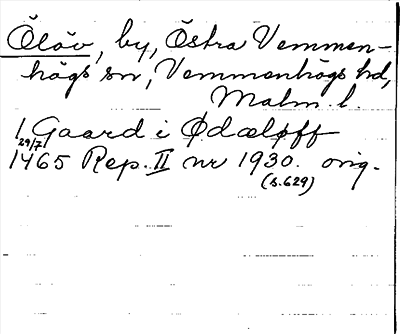 Ölöv, by, Östra Vemmen-
högs sn, Vemmenhögs hd,
Malm. l.
1 Gaard i Ødæløff
29/7
1465 Rep. II nr 1930. orig.
(s. 629)